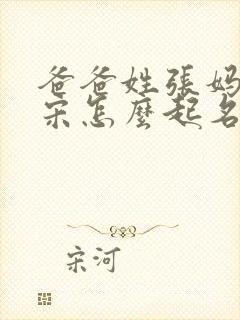 爸爸姓張媽
宋怎麼起名
宋河